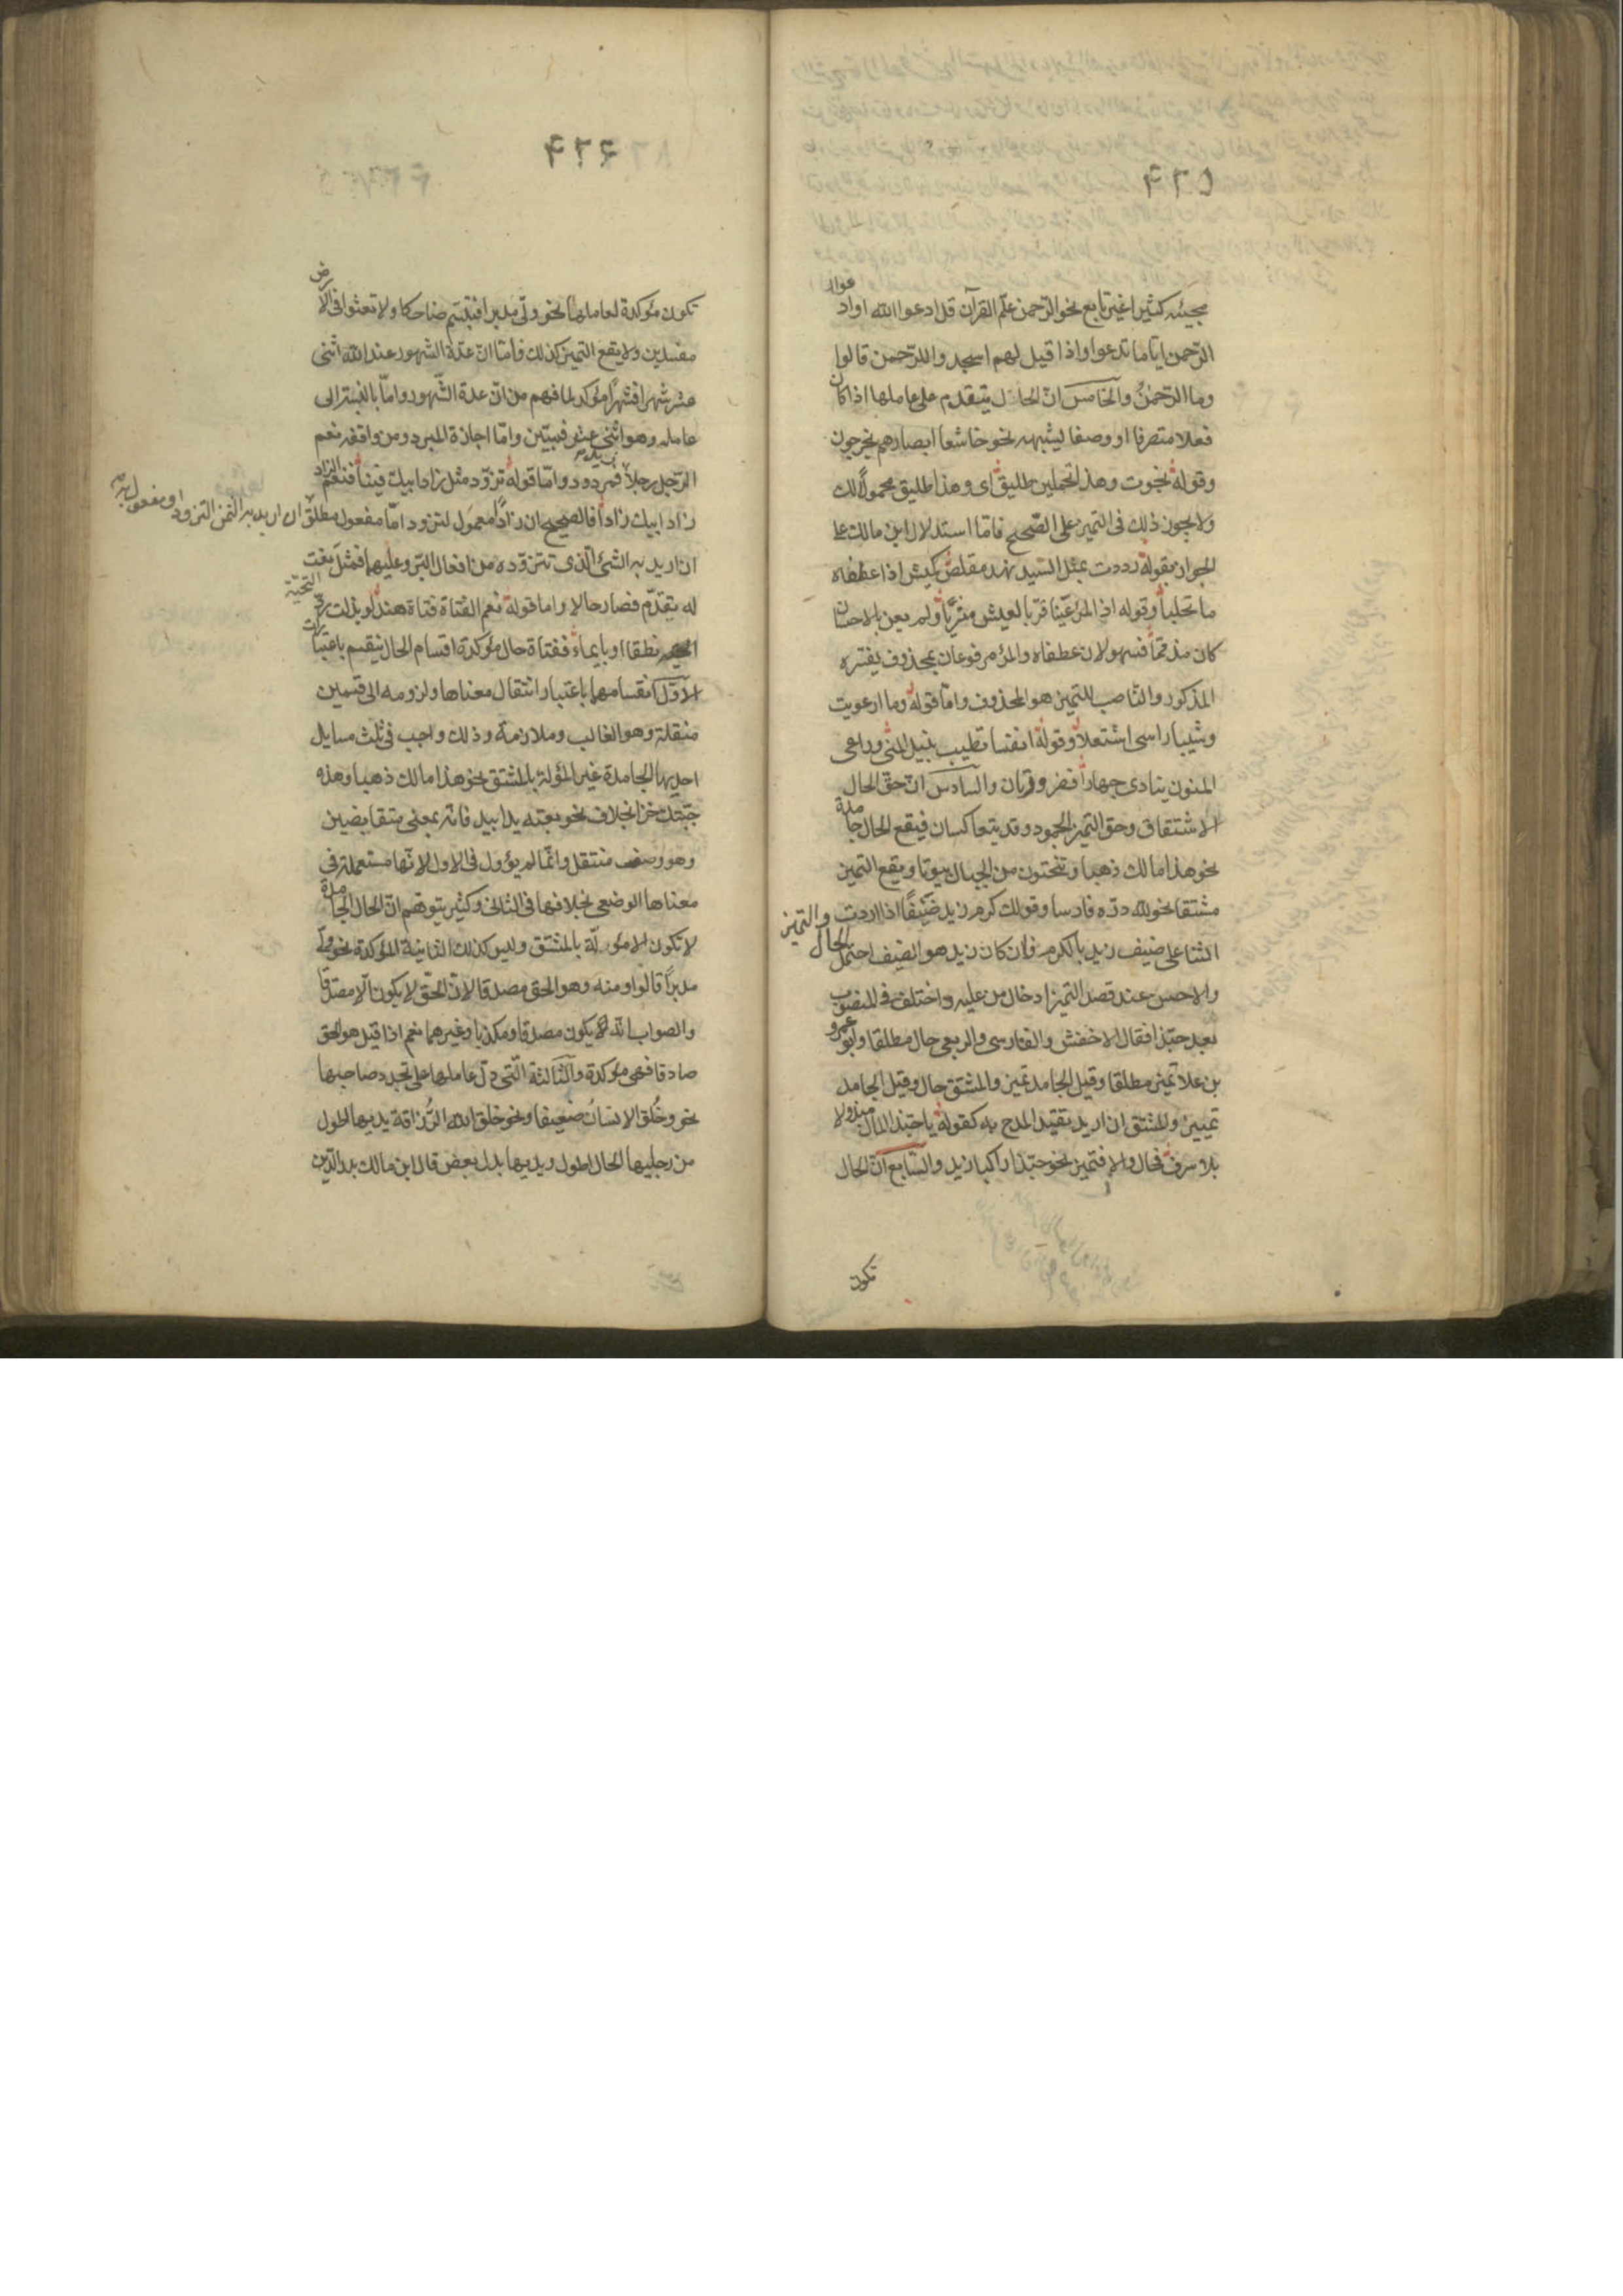 مجيئه كثيرا غير تابع نحو الرّحمن علّم القرآن قل ادعوا الله او ادعوا
الرّحمن ايّاما تدعوا واذا قيل لهم اسجدوا للرّحمن قالوا
وما الرّحمن والخامس انّ الحال يتقدم على عاملها اذا كان
فعلا متصرفا او وصفا يشبهه نحو خاشعا ابصارهم يخرجون
وقوله نجوت وهذا تحملين طليق اى وهذا طليق محمولا لك
ولا يجوز ذلك فى التميز على الصّحيح فاما استدلال ابن مالك على
الجواز بقوله رددت بمثل السّيد نهد مقلص كميش اذا عطفاه
ماء تحلبا وقوله اذا المرء عينا قرّ بالعيش مثريا ولم يعن بالاحسان
كان مذمّما فسهو لان عطفاه والمرء مرفوعان بمحذوف يفسّره
المذكور والنّاصب للتميز هو المحذوف وامّا قوله وما ارعويت
وشيبا راسى اشتعلا وقوله انفسا تطيب بنيل المنى وداعى
المنون ينادى جهارا فضرورتان والسادس انّ حقّ الحال
الاشتقاق وحق التميز الجمود وقد يتعاكسان فيقع الحال جامدة
نحو هذا مالك ذهبا وتنحتون من الجبال بيوتا ويقع التميز
مشتقا نحو لله درّه فارسا وقولك كرم زيد ضيفا اذا اردت
الثنا على ضيف زيد بالكرم فان كان زيد هو الضيف احتمل الحال والتميز
والاحسن عند قصد التميز ادخال من عليه واختلف فى المنصوب
بعد حبّذا فقال الاخفش والفارسى والربعى حال مطلقا وابو عمرو
بن علا تميز مطلقا وقيل الجامد تميز والمشتق حال وقيل الجامد
تمييز والمشتق ان اريد تقييد المدح به كقوله يا حبّذا المال مبذولا
بلا سرف فحال والا فتميز نحو حبّذا راكبا زيد والسّابع انّ الحال
تكون
تكون مؤكدة لعاملها نحو ولّى مدبرا فتبسّم ضاحكا ولا تعثوا فى الارض
مفسدين ولا يقع التميز كذلك فامّا انّ عدّة الشهور عند الله اثنى
عشر شهرا فشهرا مؤكد لما فهم من انّ عدة الشّهور وامّا بالنسبة الى
عامله وهو اثنى عشر فمبيّن وامّا اجازة المبرد ومن وافقه نعم
الرّجل رجلا زيد فمردود وامّا قوله تزوّد مثل زاد ابيك فينا فنعم الزاد
زاد ابيك زادا فالصحيح ان زادا معمول لتزود امّا مفعول مطلق ان اريد به التزود او مفعول به
ان اريد به الشئ الّذى تتزوّده من افعال البرّ وعليهما فمثل نعت
له يتقدّم فصار حالا واما قوله نعم الفتاة فتاة هند لو بذلت ردّ التحيّة
نطقا او بايماء ففتاة حال مؤكدة اقسام الحال ينقسم باعتبارات
الاوّل انقسامها باعتبار انتقال معناها ولزومه الى قسمين
منتقلة وهو الغالب وملازمة وذلك واجب فى ثلث مسايل
احديها الجامدة غير المؤلة بالمشتق نحو هذا مالك ذهبا وهذه
جبّتك خزا بخلاف نحو بعته يدا بيد فانّه بمعنى متقابضين
وهو وصف منتقل وانّما لم يؤول فى الاول لانّها مستعملة فى
معناها الوضعى بخلافها فى الثانى وكثير يتوهم انّ الحال الجامدة
لا تكون الا مؤولة بالمشتق وليس كذلك الثانية المؤكدة نحو ولّى
مدبرا قالوا ومنه وهو الحق مصدقا لانّ الحقّ لا يكون الّا مصدقا
والصواب انّه يكون مصدقا ومكذبا وغيرهما نعم اذا قيل هو الحق
صادقا فهى مؤكدة والثّالثة الّتى دلّ عاملها على تجدد صاحبها
نحو وخُلق الانسانُ ضعيفا ونحو خلق الله الزُّرافة يديها اطول
من رجليها الحال اطول ويديها بدل بعض قال ابن مالك بدر الدّين